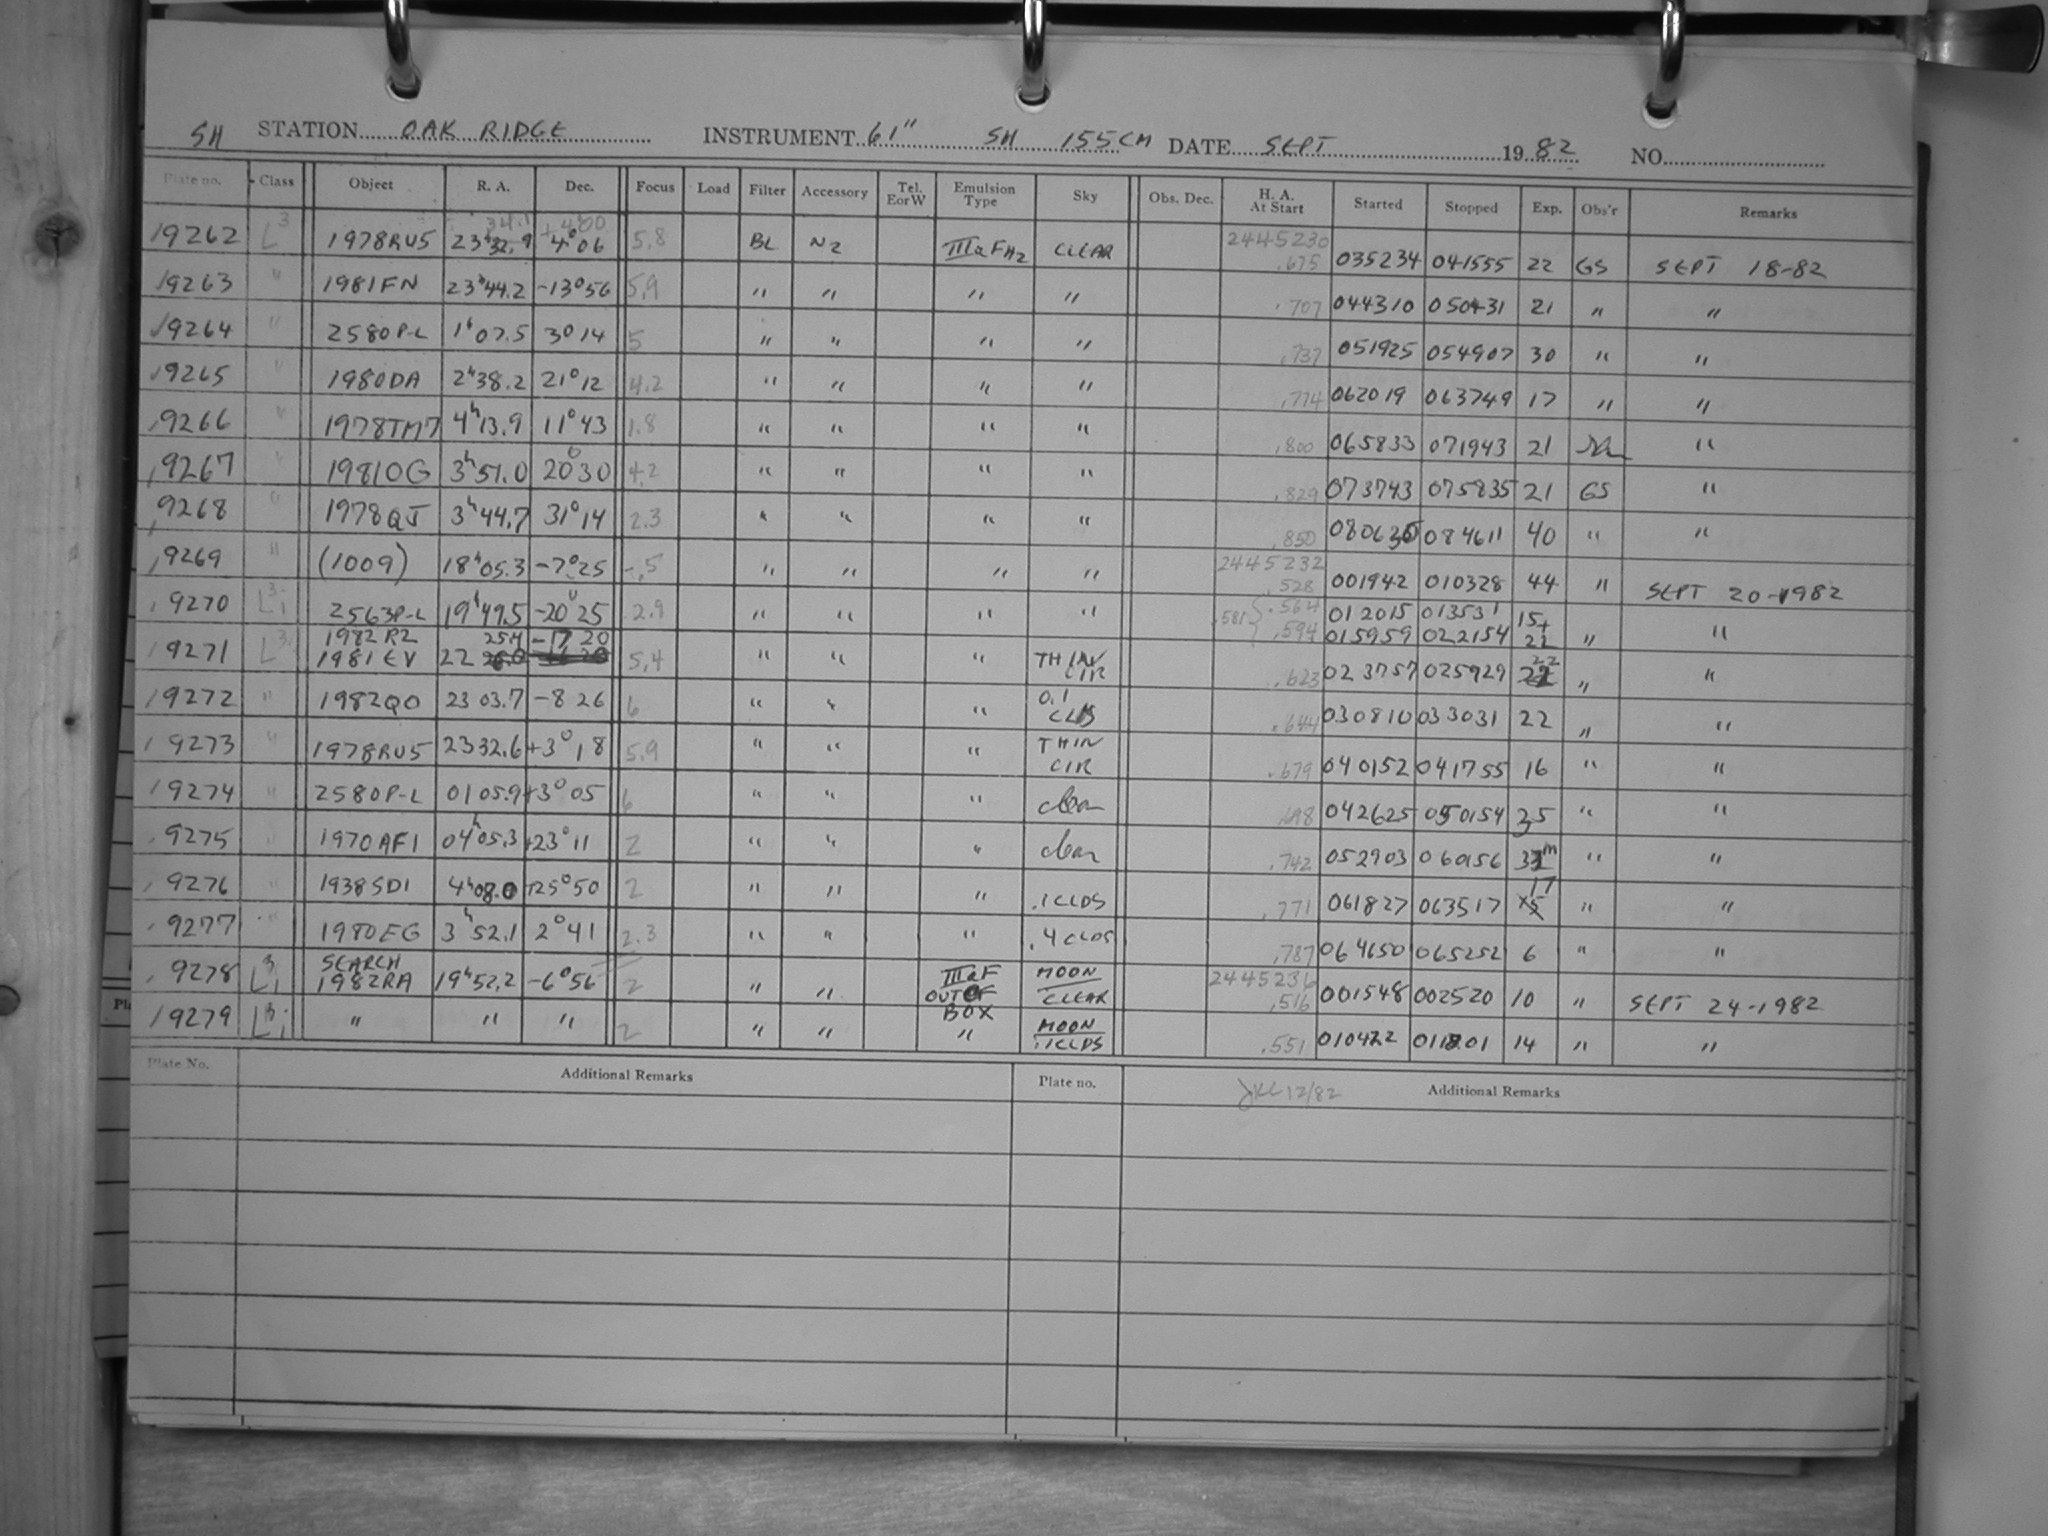 SH STATION OAK RIDGE INSTRUMENT 61" SH 155CM DATE SEPT 1982 NO.
Plate no. Class Object R. A. Dec. Focus Load Filter Accessory Tel. E or W Emulsion Type Sky Obs. Dec. H. A. At Start Started Stopped Exp. Obs'r Remarks
34.1 +4°00 2445230
19262 L3 1978RU5 23h32.9 4°06 5.8 BL N2 IIIaFH2 CLEAR .675 035234 041555 22 GS SEPT 18-82
19263 " 1981FN 23h44.2 -13°56 5.9 " " " " .707 044310 050431 21 " "
19264 " 2580P-L 1h07.5 3°14 5 " " " " .737 051925 054907 30 " "
19265 " 1980DA 2h38.2 21°12 4.2 " " " " .774 062019 063749 17 " "
19266 " 1978TM7 4h13.9 11°43 1.8 " " " " .800 065833 071943 21 "
19267 " 1981OG 3h51.0 20°30 4.2 " " " " .829 073743 075835 21 GS "
19268 " 1978QJ 3h44.7 31°14 2.3 " " " " .850 080630 084611 40 " "
2445232
19269 " (1009) 18h05.3 -7°25 -.5 " " " " .528 001942 010328 44 " SEPT 20-1982
.564 012015 013531 15+
19270 L3 1 2563P-L 19h49.5 -20°25 2.9 " " " " .585 .594 015959 022154 22 " "
1982RZ 25.4 -17 20
19271 L3 1981EV 22 5.4 " " " THIN CIR .623 023757 025929 22 " "
19272 " 1982QO 23 03.7 -8 26 6 " " " 0.1 CLDS .644 030810 033031 22 " "
19273 " 1978RU5 23 32.6 +3°18 5.9 " " " THIN CIR .679 040152 041755 16 " "
19274 " 2580P-L 01 05.9 +3°05 6 " " " clear .698 042625 050154 35 " "
19275 " 1970AF1 04h05.3 +23°11 2 " " " clear .742 052903 060156 32m " "
19276 " 1938SD1 4h08.0 +25°50 2 " " " .1CLDS .771 061827 063517 17 " "
19277 " 1980EG 3h52.1 2°41 2.3 " " " .4CLDS .787 064650 065252 6 " "
SEARCH 2445236
19278 L3 1 1982RA 19h52.2 -6°56 2 " " IIIaF OUT OF BOX MOON CLEAR .516 001548 002520 10 " SEPT 24-1982
19279 L3 1 " " " 2 " " " MOON .1CLDS .551 010422 011801 14 " "
Plate No. Additional Remarks Plate no. 12/82 Additional Remarks